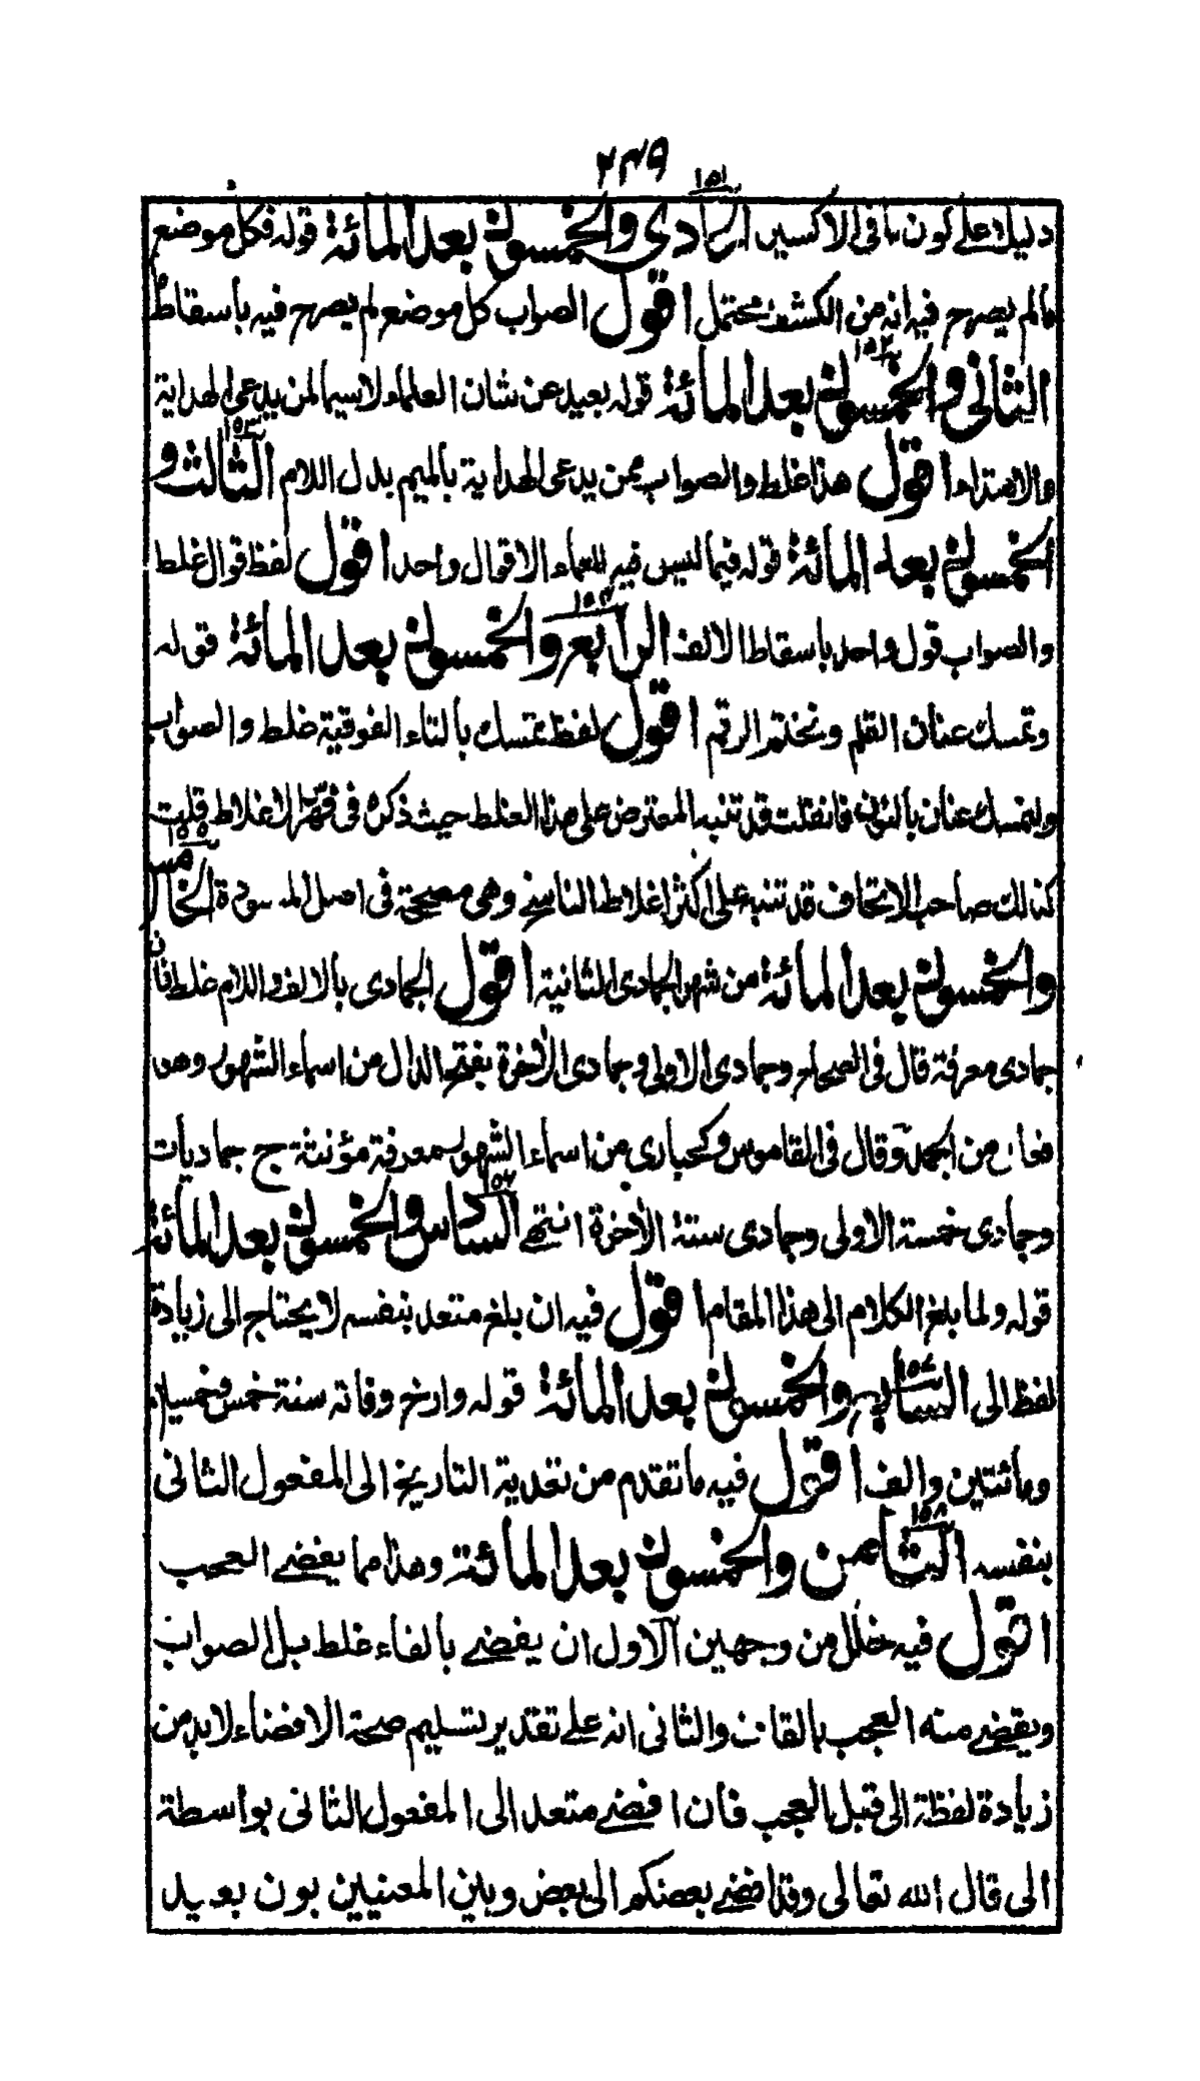 ٢٣٩
١٥١
دليلا على كون ما في الاكسير الحادي والخمسون بعد المائة قوله فكل موضع
مالم يصرح فيه انه من الكشف محتمل اقول الصواب كل موضع لم يصرح فيه باسقاط ما
١٥٢
الثاني والخمسون بعد المائة قوله بعيد عن شان العلماء لاسيما لمن يدعى الهداية
١٥٣
والاهتداء اقول هذا غلط والصواب ممن يدعى الهداية بالميم بدل اللام الثالث و
الخمسون بعد المائة قوله فيما ليس فيه للعلماء الا قوال واحد اقول لفظ قوال غلط
١٥٤
والصواب قول واحد باسقاط الالف الرابع والخمسون بعد المائة قوله
وتمسك عنان القلم ونختتم الرقم اقول لفظ تمسك بالتاء الفوقية غلط والصواب
ولنمسك عنان بالنون فان قلت قد تنبه المعترض على هذا الغلط حيث ذكره في فهرس الاغلاط قلت
١٥٥
كذلك صاحب الاتحاف قد تنبه على اكثر اغلاط الناسخ وهى مصححة في اصل المسودة الخامس
والخمسون بعد المائة من شهر الجمادى الثانية اقول الجمادى بالالف واللام غلط فان
جمادى معرفة قال في الصحاح وجمادى الاولى وجمادى الآخرة بفتح الدال من اسماء الشهور وهو
فعالى من الجمد وقال في القاموس وكحبارى من اسماء الشهور معرفة مؤنثة ج جماديات
١٥٦
وجمادى خمسة الاولى وجمادى ستة الآخرة انتهى السادس والخمسون بعد المائة
قوله ولما بلغ الكلام الى هذا المقام اقول فيه ان بلغ متعد بنفسه لا يحتاج الى زيادة
١٥٧
لفظ الى السابع والخمسون بعد المائة قوله وارخ وفاته سنة خمس وخمسين
ومائتين والف اقول فيه ما تقدم من تعدية التاريخ الى المفعول الثاني
١٥٨
بنفسه الثامن والخمسون بعد المائة وهذا مما يفضى العجب
اقول فيه خلل من وجهين الاول ان يفضى بالفاء غلط بل الصواب
ويقضى منه العجب بالقاف والثاني انه على تقدير تسليم صحة الافضاء لابد من
زيادة لفظة الى قبل العجب فان افضى متعد الى المفعول الثاني بواسطة
الى قال الله تعالى وقد افضى بعضكم الى بعض وبين المعنيين بون بعيد